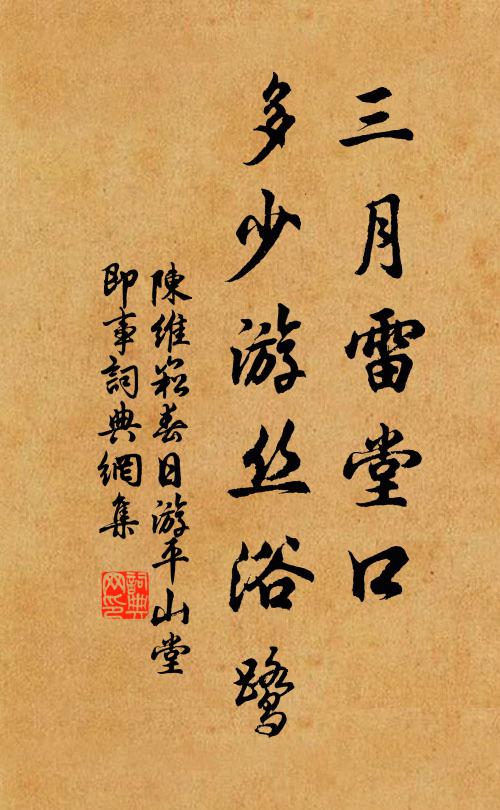 三月雷堂口
多少游丝浴鹭
陳維崧春日游平山堂
即事詞典網集
詞典网印